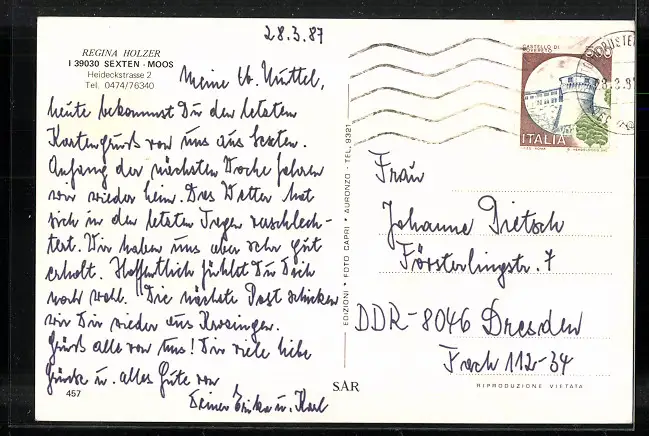 28.3.87
REGINA HOLZER
I 39030 SEXTEN - MOOS
Heideckstrasse 2
Tel. 0474/76340
Meine lb. Muttel,
heute bekommst Du den letzten
Kartengruß von uns aus Sexten.
Anfang der nächsten Woche fahren
wir wieder heim. Das Wetter hat
sich in den letzten Tagen verschlech-
tert. Wir haben uns aber sehr gut
erholt. Hoffentlich fühlst Du Dich
noch wohl. Die nächste Post schicken
wir Dir wieder aus
Gruß alle von uns! Dir viele liebe
Grüße u. alles Gute von
Deiner Erika u. Karl
457
SAR
EDIZIONI * FOTO CAPRI * AURONZO - TEL. 9321
CASTELLO DI
ROVERETO
ITALIA
Frau
Johanne Pietsch
Försterlingstr. 7
DDR-8046 Dresden
Fach 112-34
RIPRODUZIONE VIETATA